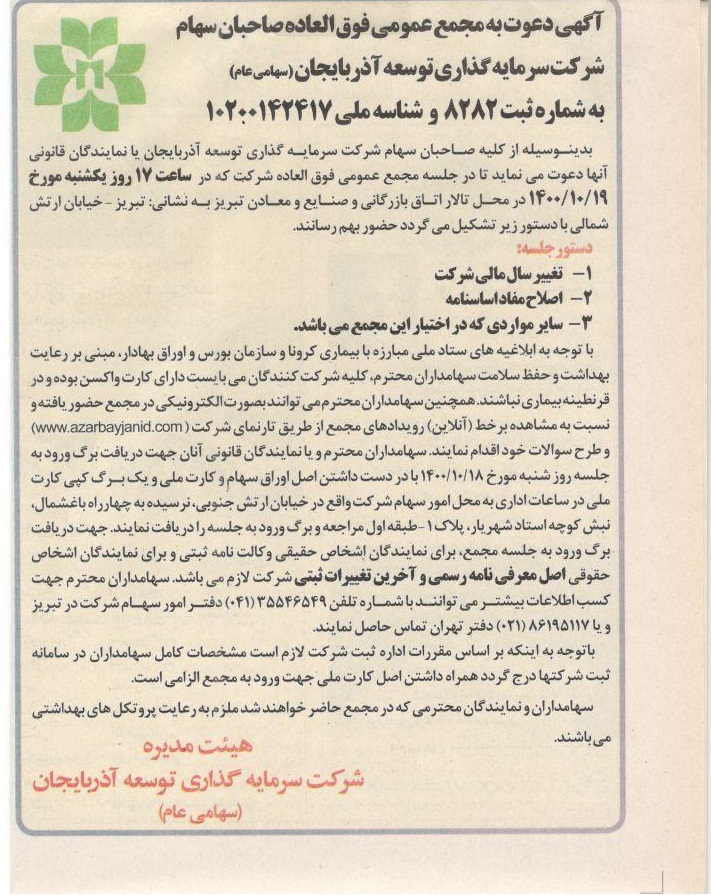 آگهی دعوت به مجمع عمومی فوق العاده صاحبان سهام
شرکت سرمایه گذاری توسعه آذربایجان (سهامی عام)
به شماره ثبت ۸۲۸۲ و شناسه ملی ۱۰۲۰۰۱۴۲۴۱۷
بدینوسیله از کلیه صاحبان سهام شرکت سرمایه گذاری توسعه آذربایجان یا نمایندگان قانونی
آنها دعوت می نماید تا در جلسه مجمع عمومی فوق العاده شرکت که در ساعت ۱۷ روز یکشنبه مورخ
۱۴۰۰/۱۰/۱۹ در محل تالار اتاق بازرگانی و صنایع و معادن تبریز به نشانی: تبریز - خیابان ارتش
شمالی با دستور زیر تشکیل می گردد حضور بهم رسانند.
دستور جلسه:
۱- تغییر سال مالی شرکت
۲- اصلاح مفاد اساسنامه
۳- سایر مواردی که در اختیار این مجمع می باشد.
با توجه به ابلاغیه های ستاد ملی مبارزه با بیماری کرونا و سازمان بورس و اوراق بهادار، مبنی بر رعایت
بهداشت و حفظ سلامت سهامداران محترم، کلیه شرکت کنندگان می بایست دارای کارت واکسن بوده و در
قرنطینه بیماری نباشند. همچنین سهامداران محترم می توانند بصورت الکترونیکی در مجمع حضور یافته و
نسبت به مشاهده برخط (آنلاین) رویدادهای مجمع از طریق تارنمای شرکت (www.azarbayjanid.com)
و طرح سوالات خود اقدام نمایند. سهامداران محترم و یا نمایندگان قانونی آنان جهت دریافت برگ ورود به
جلسه روز شنبه مورخ ۱۴۰۰/۱۰/۱۸ با در دست داشتن اصل اوراق سهام و کارت ملی و یک برگ کپی کارت
ملی در ساعات اداری به محل امور سهام شرکت واقع در خیابان ارتش جنوبی، نرسیده به چهارراه باغشمال،
نبش کوچه استاد شهریار، پلاک ۱-طبقه اول مراجعه و برگ ورود به جلسه را دریافت نمایند. جهت دریافت
برگ ورود به جلسه مجمع، برای نمایندگان اشخاص حقیقی وکالت نامه ثبتی و برای نمایندگان اشخاص
حقوقی اصل معرفی نامه رسمی و آخرین تغییرات ثبتی شرکت لازم می باشد. سهامداران محترم جهت
کسب اطلاعات بیشتر می توانند با شماره تلفن ۳۵۵۴۶۵۴۹ (۰۴۱) دفتر امور سهام شرکت در تبریز
و یا ۸۶۱۹۵۱۱۷ (۰۲۱) دفتر تهران تماس حاصل نمایند.
باتوجه به اینکه بر اساس مقررات اداره ثبت شرکت لازم است مشخصات کامل سهامداران در سامانه
ثبت شرکتها درج گردد همراه داشتن اصل کارت ملی جهت ورود به مجمع الزامی است.
سهامداران و نمایندگان محترمی که در مجمع حاضر خواهند شد ملزم به رعایت پروتکل های بهداشتی
می باشند.
هیئت مدیره
شرکت سرمایه گذاری توسعه آذربایجان
(سهامی عام)